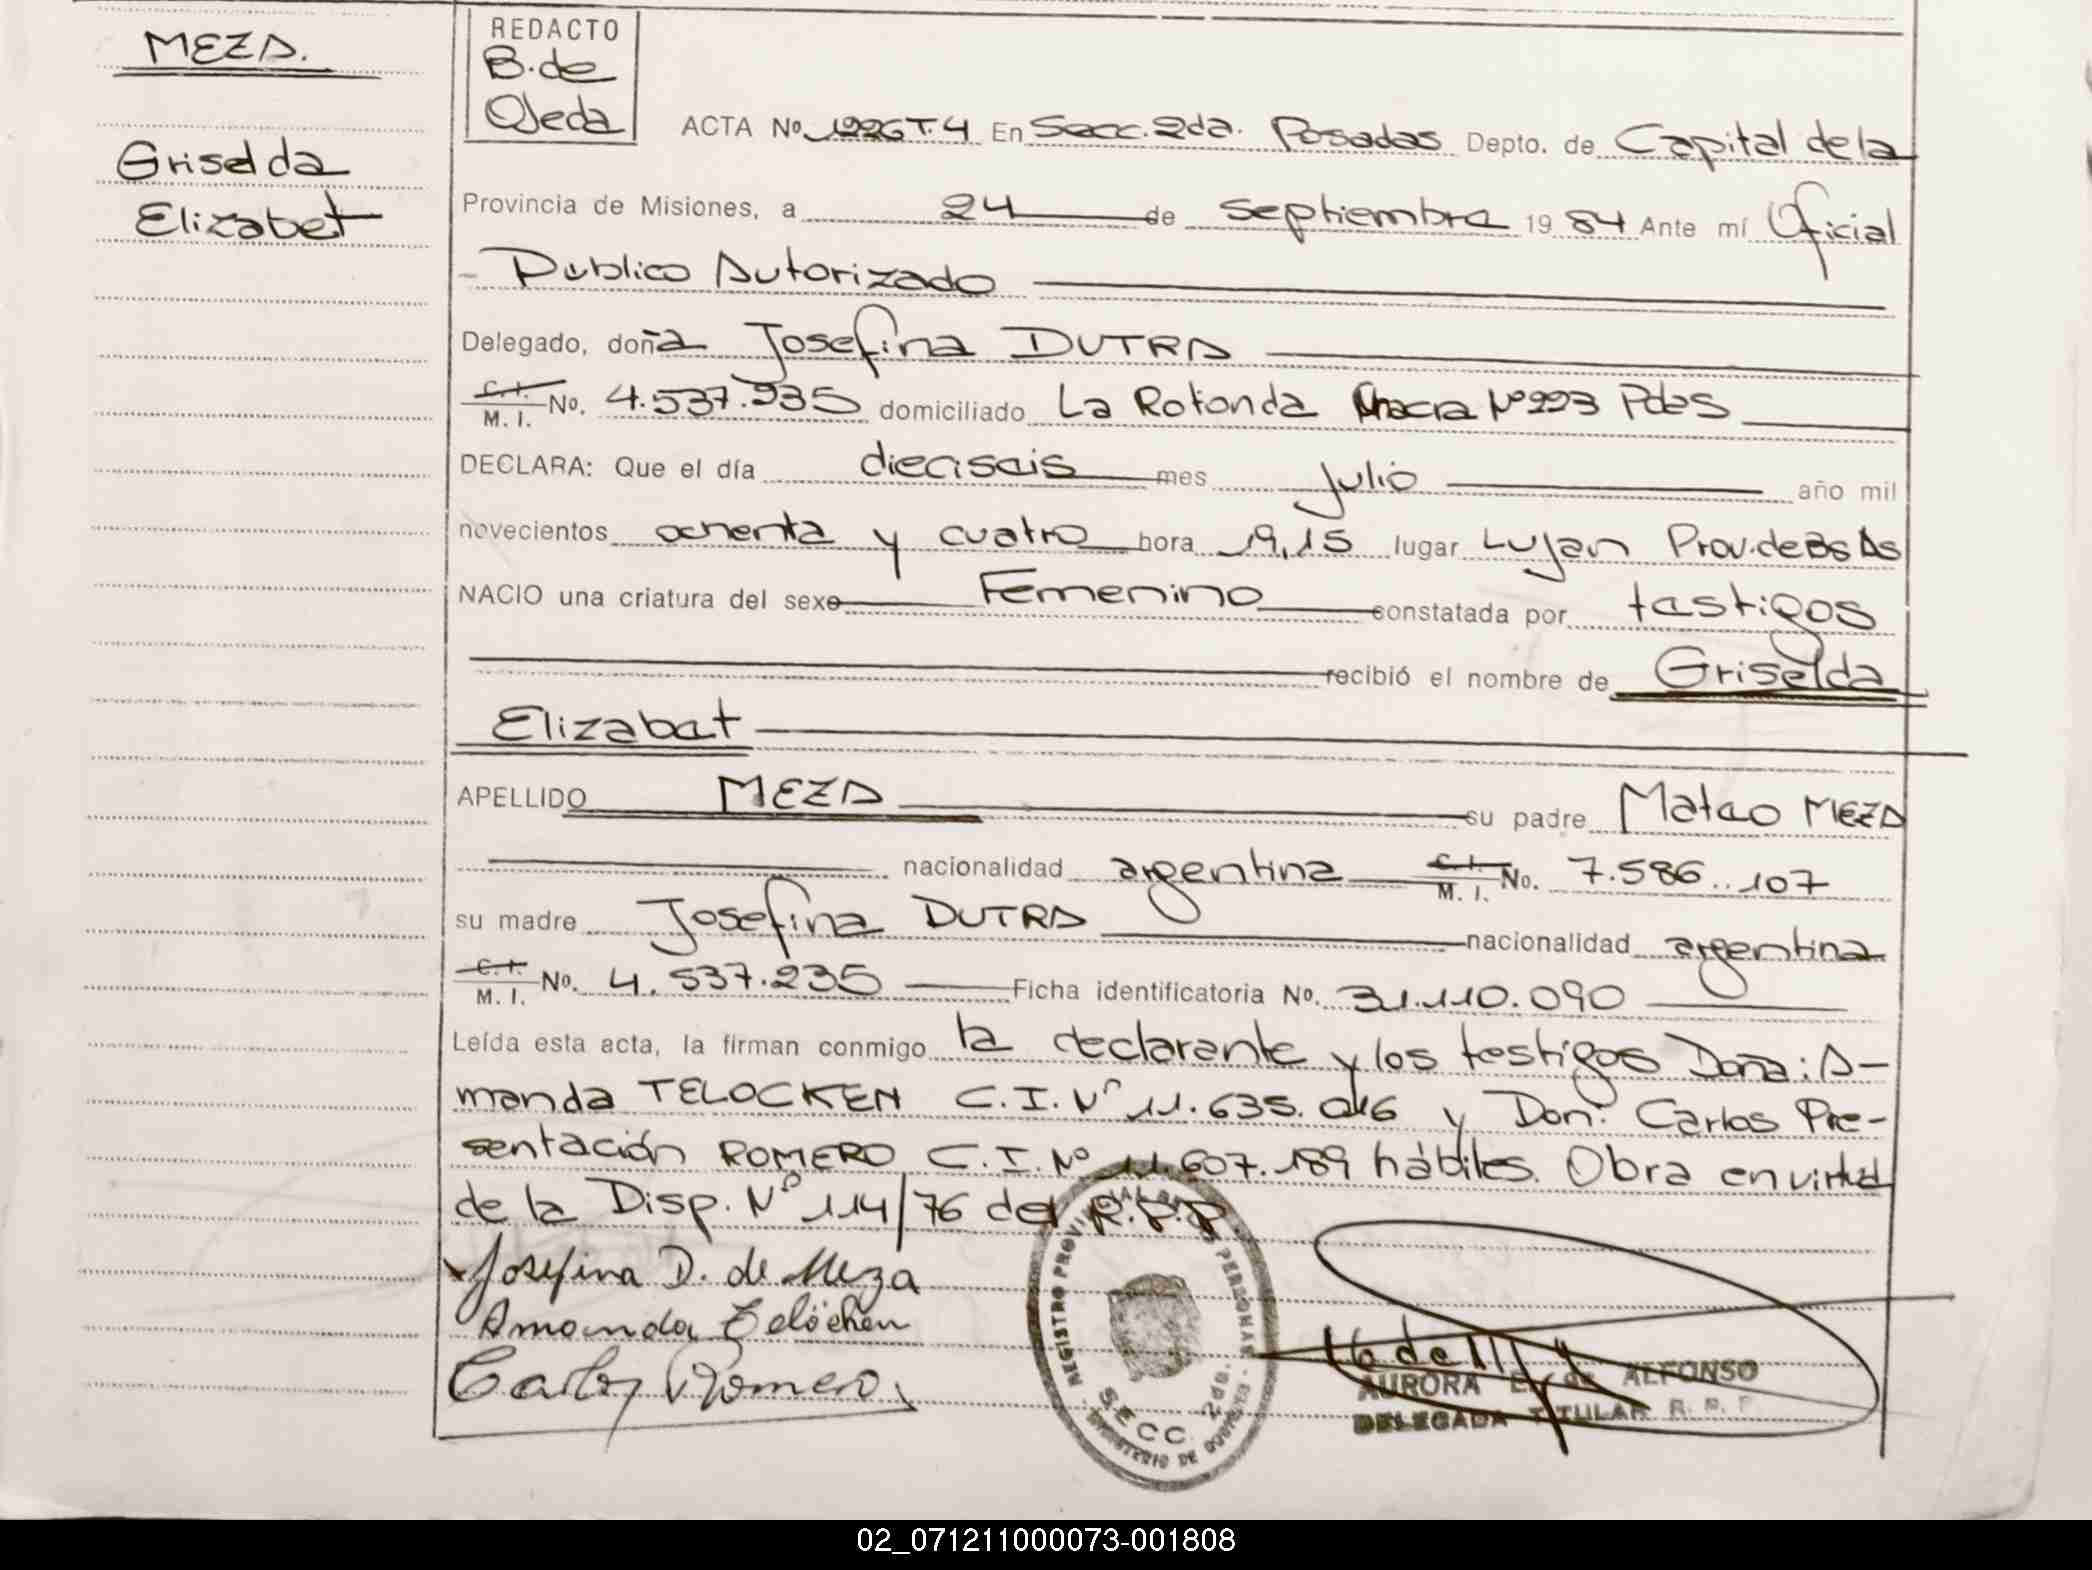 MEZA.
Griselda
Elizabet
REDACTO
B. de
Ojeda
ACTA No 1226 T. 4 En Secc. 2da. Posadas Depto. de Capital de la
Provincia de Misiones, a 24 de septiembre 19 84 Ante mí Oficial
Publico Autorizado
Delegado, doña Josefina DUTRA
C. I. M. I. No. 4.537.235 domiciliado La Rotonda Chacra Nº 223 Pdas
DECLARA: Que el día dieciseis mes julio año mil
novecientos ochenta y cuatro hora 19,15 lugar Lujan Prov. de Bs As
NACIO una criatura del sexo Femenino constatada por testigos
recibió el nombre de Griselda
Elizabet
APELLIDO MEZA su padre Mateo MEZA
nacionalidad argentina C. I. M. I. No. 7.586.107
su madre Josefina DUTRA nacionalidad argentina
C. I. M. I. No. 4.537.235 Ficha identificatoria No. 31.110.090
Leída esta acta, la firman conmigo la declarante y los testigos Doña: A-
manda TELOCKEN C.I. Nº 11.635.016 y Don: Carlos Pre-
sentación ROMERO C.I. Nº 11.607.189 hábiles. Obra en virtud
de la Disp. Nº 114/76 del R.P.P.
Josefina D. de Meza
Amanda Telöcken
Carlos Romero
REGISTRO PROVINCIAL DE LAS PERSONAS
SECC. 2da.
MINISTERIO DE GOBIERNO
AURORA E. de ALFONSO
DELEGADA TITULAR R. P. P.
02_071211000073-001808